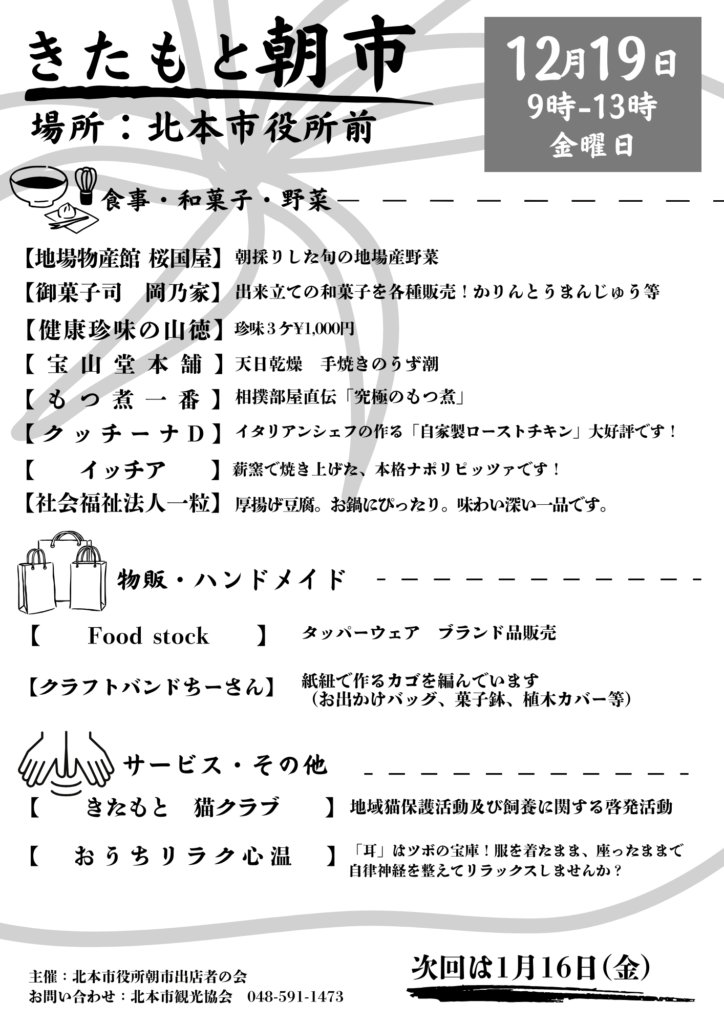 きたもと朝市
12月19日
9時-13時
金曜日
場所：北本市役所前
食事・和菓子・野菜
【地場物産館 桜国屋】 朝採りした旬の地場産野菜
【御菓子司　岡乃家】 出来立ての和菓子を各種販売！かりんとうまんじゅう等
【健康珍味の山徳】 珍味３ケ¥1,000円
【宝山堂本舗】 天日乾燥　手焼きのうず潮
【もつ煮一番】 相撲部屋直伝「究極のもつ煮」
【クッチーナD】 イタリアンシェフの作る「自家製ローストチキン」大好評です！
【イッチア】 薪窯で焼き上げた、本格ナポリピッツァです！
【社会福祉法人一粒】 厚揚げ豆腐。お鍋にぴったり。味わい深い一品です。
物販・ハンドメイド
【Food stock】 タッパーウェア　ブランド品販売
【クラフトバンドちーさん】 紙紐で作るカゴを編んでいます
（お出かけバッグ、菓子鉢、植木カバー等）
サービス・その他
【きたもと　猫クラブ】 地域猫保護活動及び飼養に関する啓発活動
【おうちリラク心温】 「耳」はツボの宝庫！服を着たまま、座ったままで
自律神経を整えてリラックスしませんか？
次回は1月16日(金)
主催：北本市役所朝市出店者の会
お問い合わせ：北本市観光協会　048-591-1473